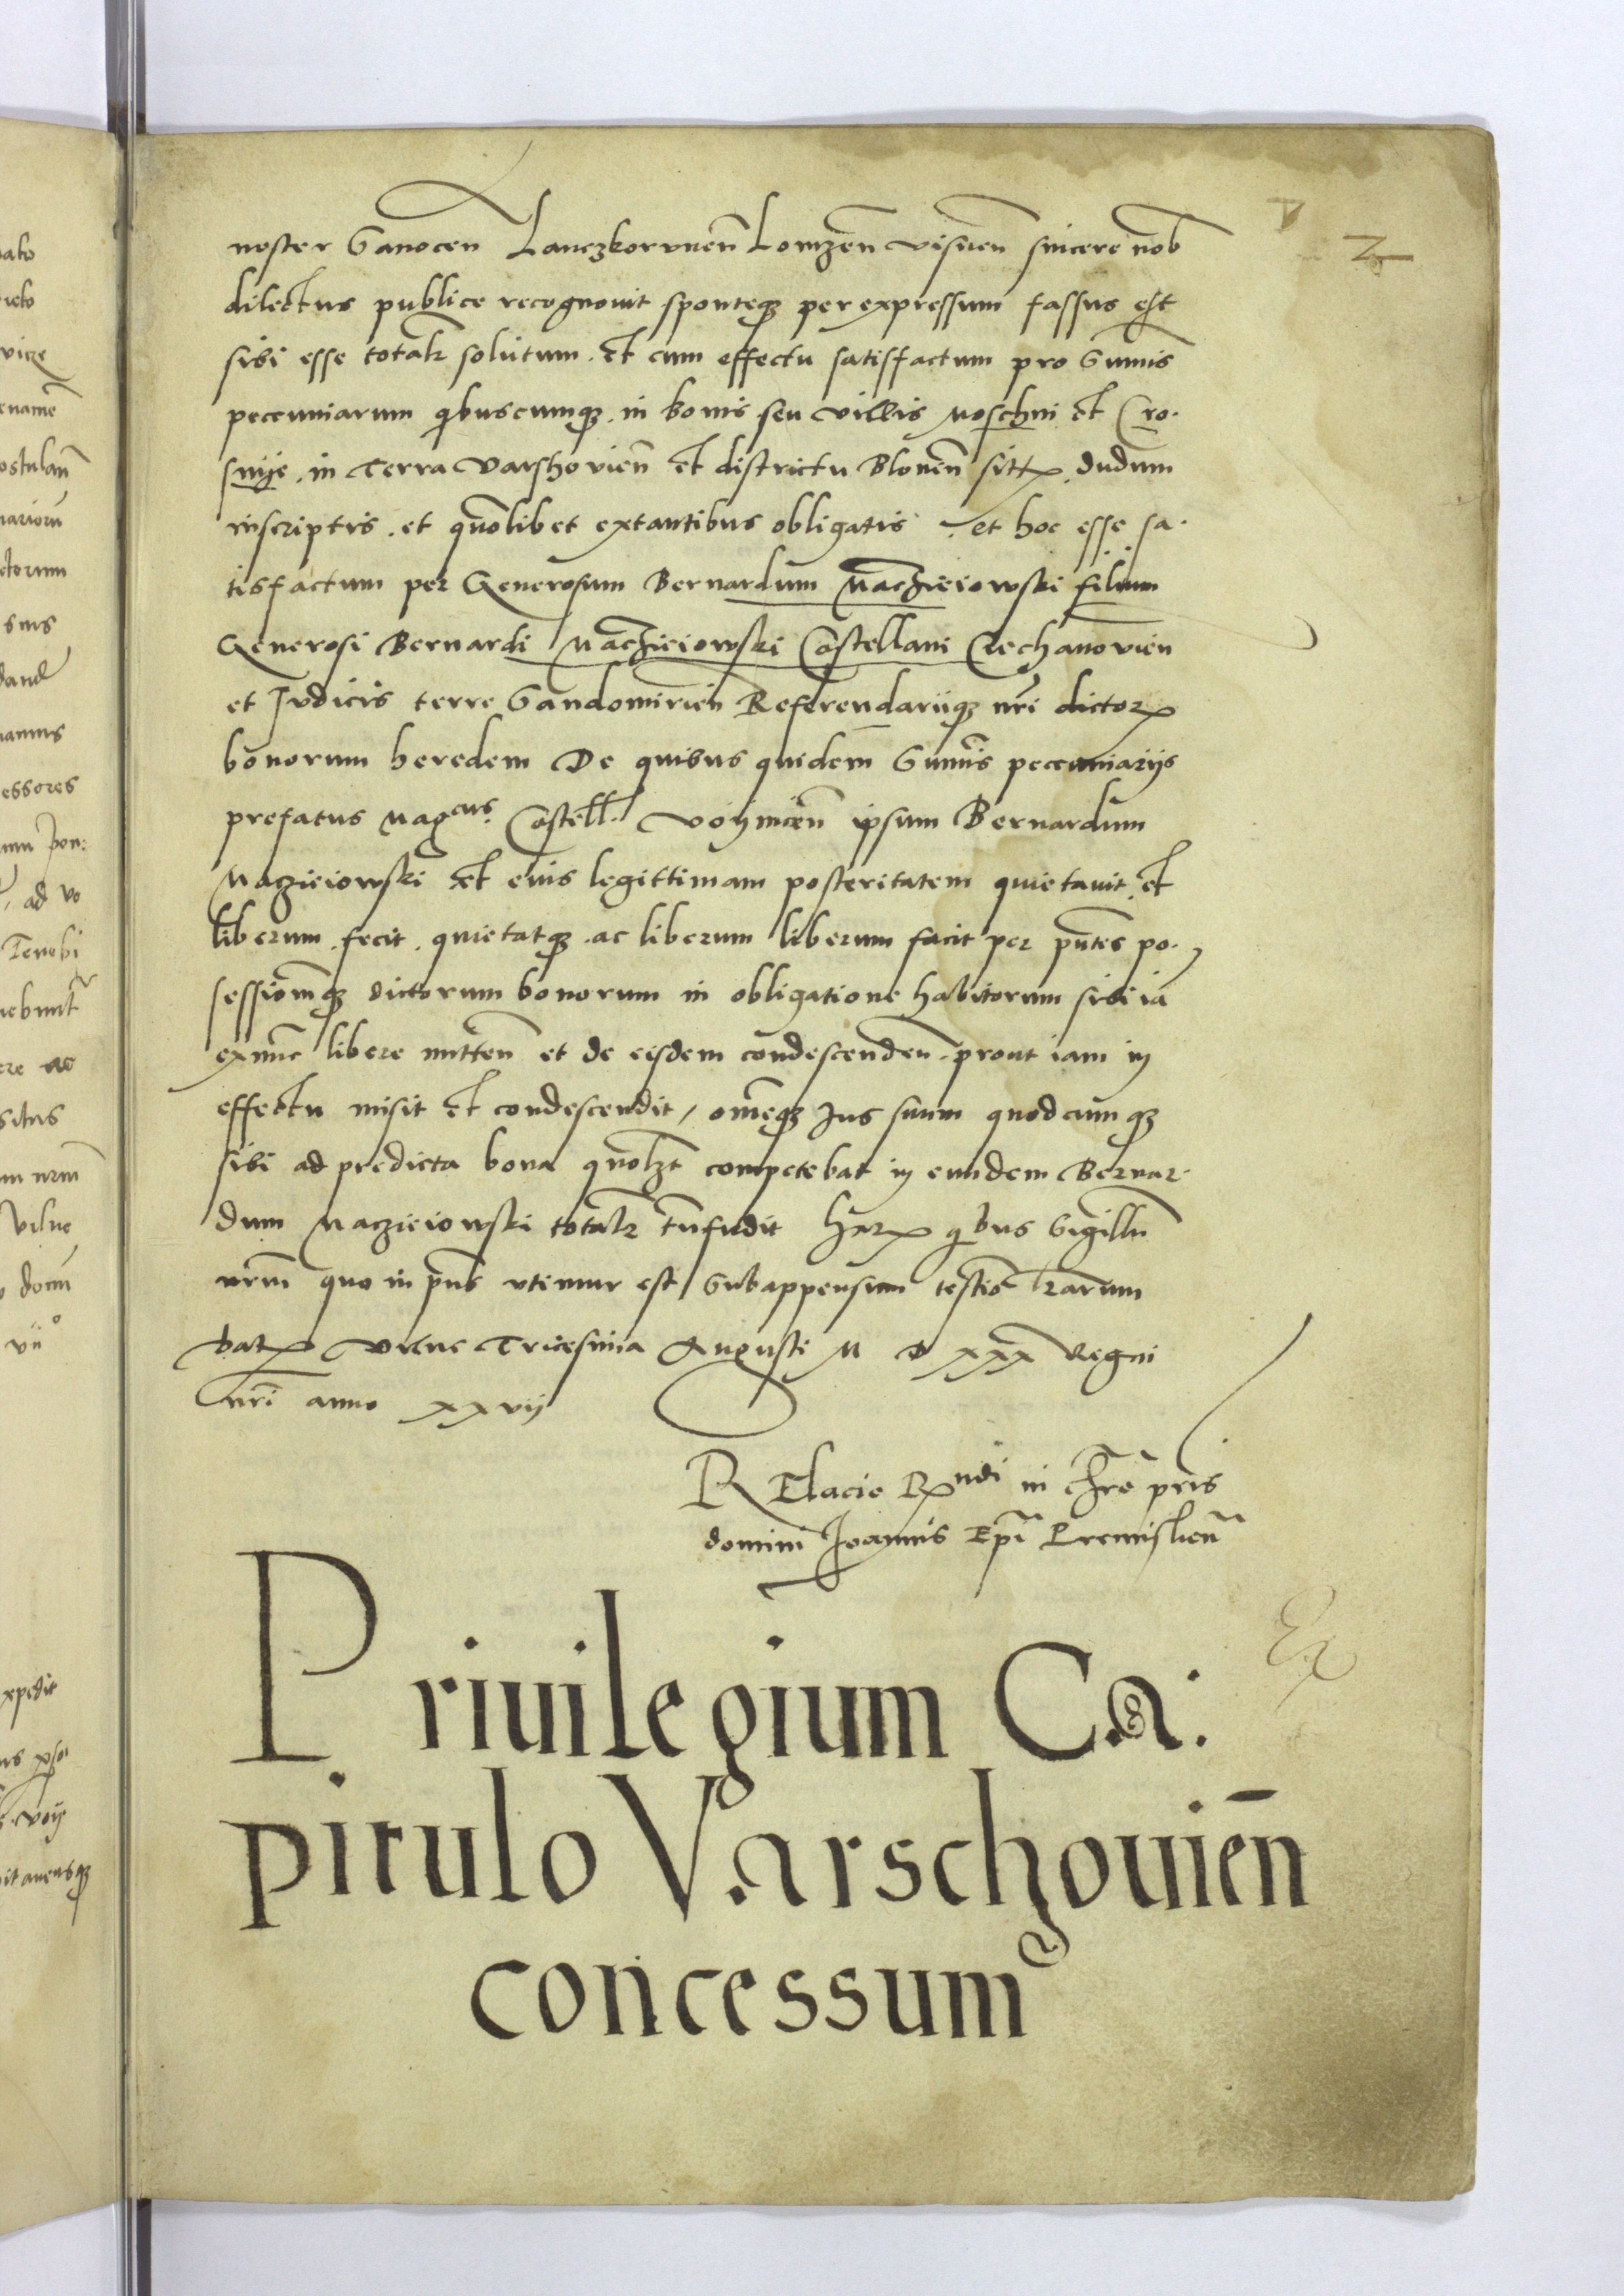 2
noster Sanocen Lanczkorunen̄ Lomzen̄ visnen̄ sincere nob̄
dilectus publice recognouit sponteq₃ per expressum fassus est
sibi esse totalr̄ solutum . et cum effectu satisfactum pro Summis
pecuniarum qͥbuscumq₃ . in bonis seu villis Moschni et Cro-
snije . in Terra Varshouien̄ et districtu Blonen̄ sitꝝ . dudum
inscriptis . et quōlibet extantibus obligatis . et hoc esse sa-
tisfactum per Generosum Bernardum Maczieiowski filium
Generosi Bernardi Maczieiowski Castellani Czechanouien̄
et Judicis terre Sandomirien̄ Referendariiq₃ nrī dictoꝝ
bonorum heredem De quibus quidem Summis pecuniariis
prefatus Magcus. Castell. Voijnicen̄ ipsum Bernardum
Maczieiowski et eius legittimam posteritatem quietauit . et
liberum . fecit . quietatq₃ . ac liberum liberum facit per pn̄tes po-
sessionēq₃ dictorum bonorum in obligatione habitorum sibi iā
exnūc libere mitten̄ et de eisdem condescenden̄ . prout iam in
effectu misit et condescendit / omēq₃ Jus suum quodcumq₃
sibi ad predicta bona quolꝫt competebat in eundem Bernar-
dum Maczieiowski totalr̄ trn̄fudit Harꝝ qͥbus Sigillū
nrm̄ quo in pn̄s vtimur est Subappensum testio͞ lrārum
Datꝝ Vilne Tricesima Augusti M D XXX Regni
nrī anno XXvij
RElacio Rndi in chrō pris
domini Joannis Epī Premislien̄
Ex
Priuilegium Ca:
pitulo Varschouien̄
concessum